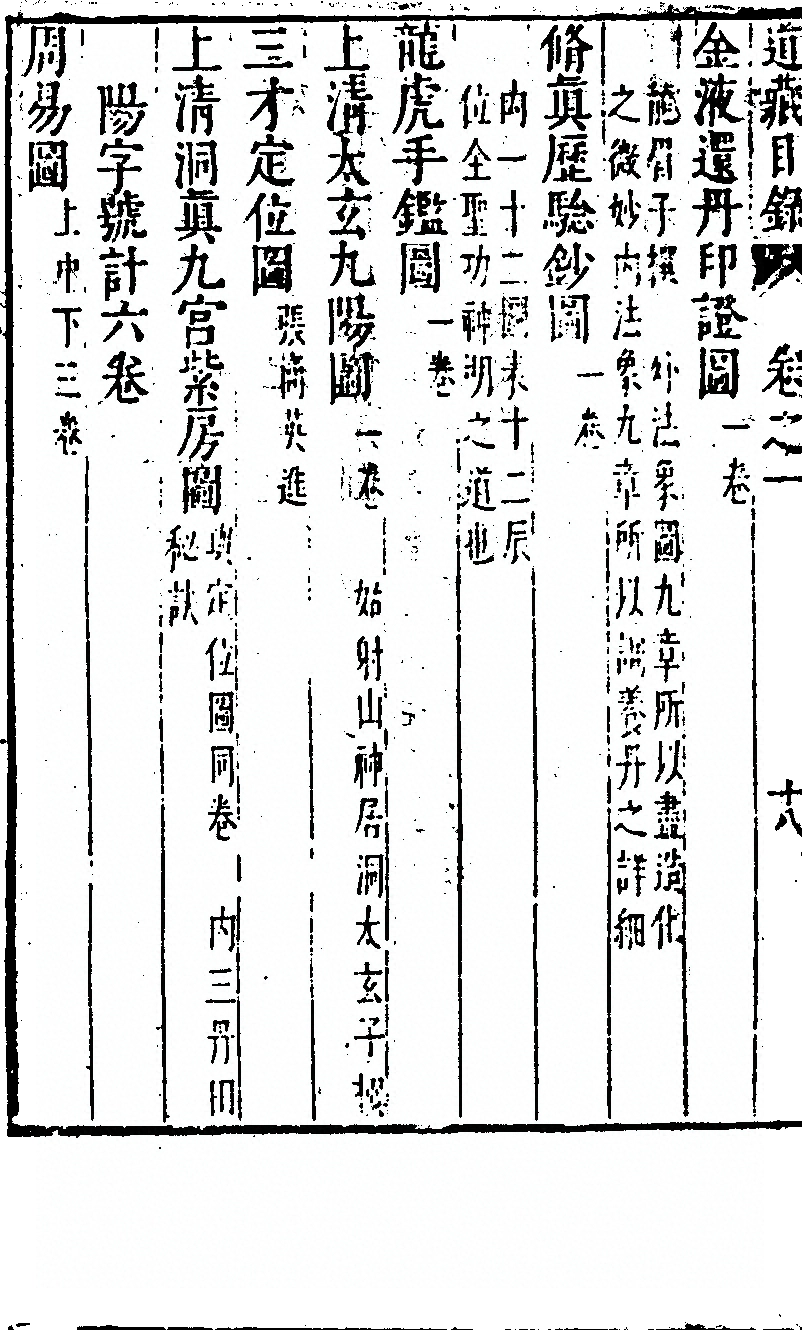 道藏目錄 卷之一 十八
金液還丹印證圖 一卷
龍眉子撰 外法象圖九章所以盡造化
之微妙內法象九章所以詶養丹之詳細
脩眞歷驗鈔圖 一卷
內一十二圖表十二辰
位全聖功神明之道也
龍虎手鑑圖 一卷
上清太玄九陽圖 一卷 始射山神居洞太玄子撰
三才定位圖 張商英進
上清洞眞九宮紫房圖 與定位圖同卷 內三丹田
秘訣
陽字號計六卷
周易圖 上中下三卷